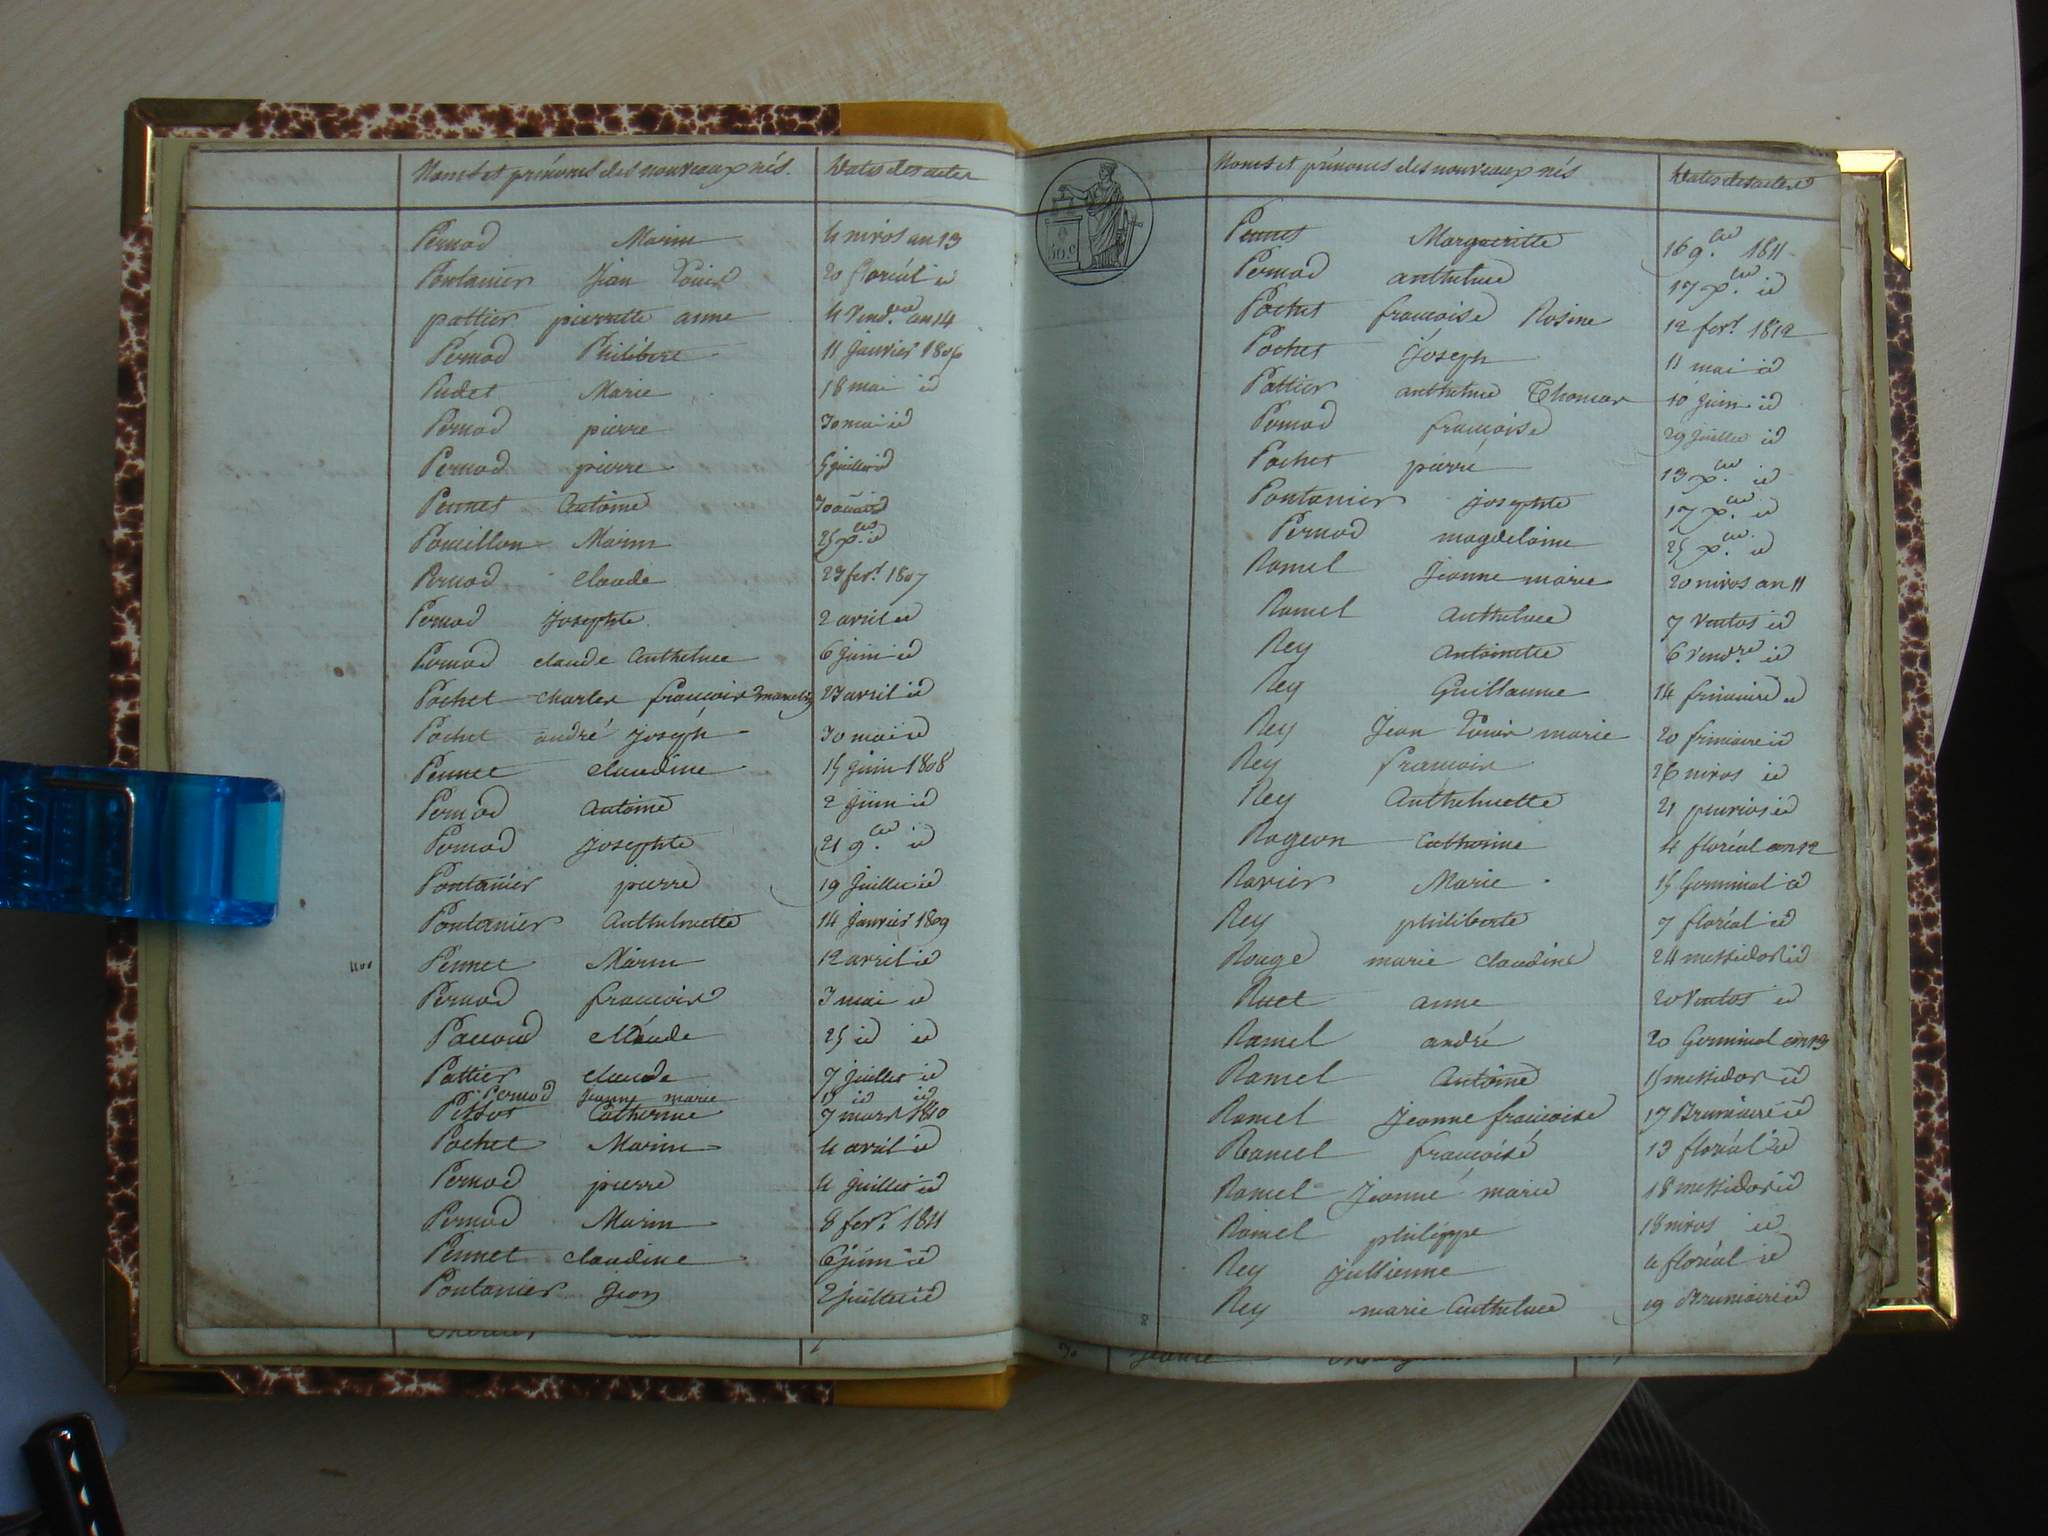 Noms et prénoms des nouveaux nés. Dates des actes
Pernod Marin 4 nivos an 13
Pontanier Jean Louis 20 floréal id
pattier pierrette anne 4 Vend.re an 14
Pernod Philibert 11 Janvier 1806
Pudet Marie 18 mai id
Pernod pierre 30 mai id
Pernod pierre 5 juillet id
Pennet Antoine 30 août id
Pouillon Marin 25 x.bre id
Pernod Claude 23 fevr. 1807
Pernod Josephte 2 avril id
Pernod claude Anthelmee 6 juin id
Pochet charles françois marcelin 23 avril id
Pochet andré Joseph 30 mai id
Pennet claudine 15 juin 1808
Pernod Antoine 2 juin id
Pernod Josephte 21 9.bre id
Pontanier pierre 19 Juillet id
Pontanier Anthelmette 14 Janvier 1809
1100 Pennet Marin 12 avril id
Pernod françois 3 mai id
Paccoud Claude 25 id id
Pattier claude 7 Juillet id
Pernod jeanne marie id id
Catherine 7 mars 1810
Pochet Marin 4 avril id
Pernod pierre 4 Juillet id
Pernod Marin 8 fevr. 1811
Pennet claudine 6 juin id
Pontanier Jean 2 juillet id
50 c
Noms et prénoms des nouveaux nés Dates des actes
Pennet Margueritte 16 9.bre 1811
Pernod anthelme 17 x.bre id
Pochet françoise Rosine 12 fevr. 1812
Pochet Joseph 11 mai id
Pattier anthelme Thomas 10 Juin id
Pernod françoise 29 juillet id
Pochet pierre 13 x.bre id
Pontanier josephte 17 x.bre id
Pernod magdelaine 25 x.bre id
Ramel Jeanne marie 20 nivos an 11
Ramel Anthelmee 7 Ventos id
Rey Antoinette 6 Vend.re id
Rey Guillaume 14 frimaire id
Rey Jean Louis marie 20 frimaire id
Rey françois 26 nivos id
Rey Anthelmette 21 pluvios id
Rageon Catherine 4 floréal an 12
Ravier Marie 15 Germinal id
Rey philiberte 7 floréal id
Rouge marie claudine 24 messidor id
Ruet anne 20 Ventos id
Ramel andré 20 Germinal an 13
Ramel Antoine 15 messidor id
Ramel Jeanne françoise 17 Brumaire id
Ramel françoise 13 floréal id
Ramel Jeanne marie 18 messidor id
Ramel philippe 18 nivos id
Rey Jullienne 4 floréal id
Rey marie Anthelmee 19 Brumaire id